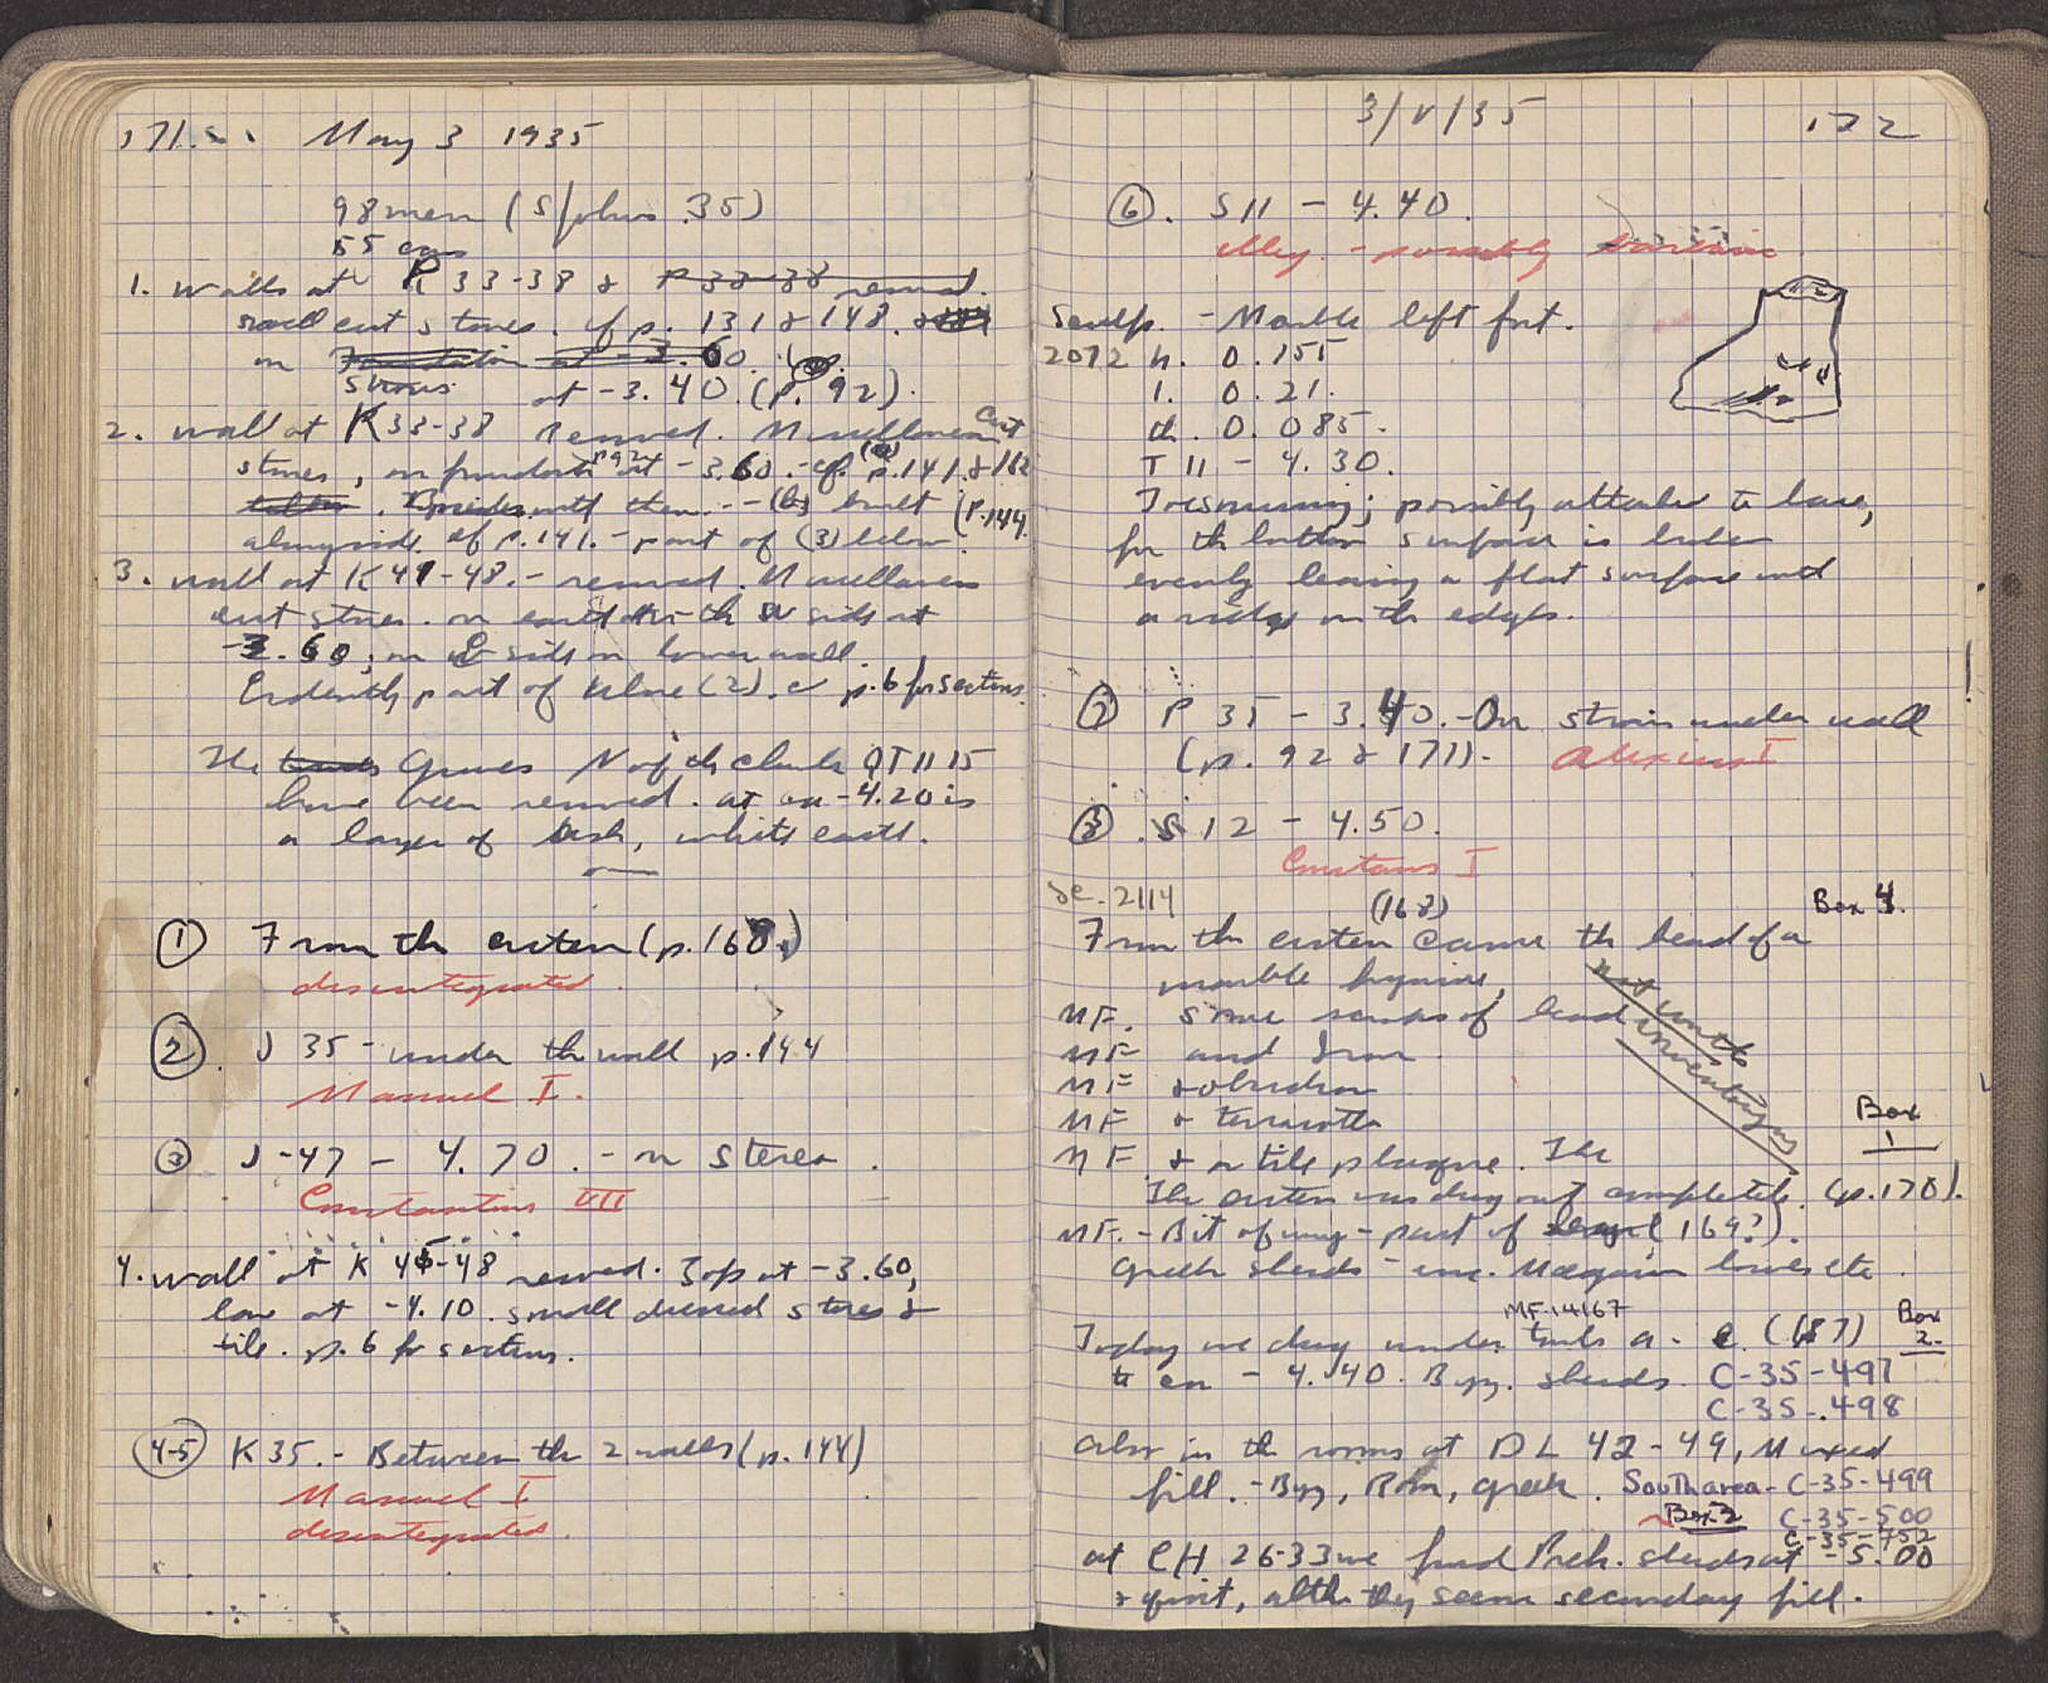 171. May 3 1935
98 men (S/plus .35)
55 cars
1. Walls at R 33-38 & P 33-38 removed.
small cut stones. cf p. 131 & 148. &
on Foundation at -3.60.
Stereo at -3.40. (p. 92).
2. Wall at K 33-38 removed. Miscellaneous cut
stones, on foundation p 92 at -3.60. - cf. (a) p. 141. & 162
. Besides with them - (b) built (P. 144
alongside. cf p. 141. - part of (3) below.
3. Wall at K 47-48. - removed. Miscellaneous
cut stones. on earth on the W side at
-3.60; on E side on lower wall.
Evidently part of above (2). p. 6 for sections.
The Graves N of ch. QT 11 15
have been removed. at ca -4.20 is
a layer of ash, white earth.
① From the cistern (p. 168.)
disintegrated.
②. J 35 - under the wall p. 144
Manuel I.
③ J-47 - 4.70. - on Stereo.
Constantine VII
4. Wall at K 45-48 removed. Top at -3.60,
low at -4.10. small dressed stones &
tile. p. 6 for sections.
4-5 K 35. - Between the 2 walls (p. 144)
Manuel I
disintegrated.
3/V/35 172
⑥. S 11 - 4.40.
alloy - possibly
Sculp. - Marble left foot.
2072 h. 0.155
l. 0.21.
th. 0.085.
T 11 - 4.30.
Toes missing; possibly attached to base,
for the bottom surface is broken
evenly leaving a flat surface and
a ridge on the edges.
⑦ P 35 - 3.40. - On stereo under wall
(p. 92 & 171). Alexius I
⑧. S 12 - 4.50.
Constans I
Sc. 2114 (168) Box 4.
From the cistern came the head of a
marble figurine,
MF. some scraps of lead not worth inventorying
MF and Iron
MF & obsidian
MF & terracotta Box
MF & a tile plaque. The 1
The cistern was dug out completely. (p. 170).
MF. - Bit of ring - part of (169?).
Greek sherds - inc. Megarian bowls etc.
MF-14167 Box
Today we dug under tombs a - e (187) 2.
to ca -4.40. Byz. sherds. C-35-497
C-35-498
Also in the rooms at DL 42-49, Mixed
fill. - Byz, Rom, Greek. South area - C-35-499
Box 3 C-35-500
C-35-752
at CH 26-33 we found Preh. sherds at -5.00
& quit, altho they seem secondary fill.